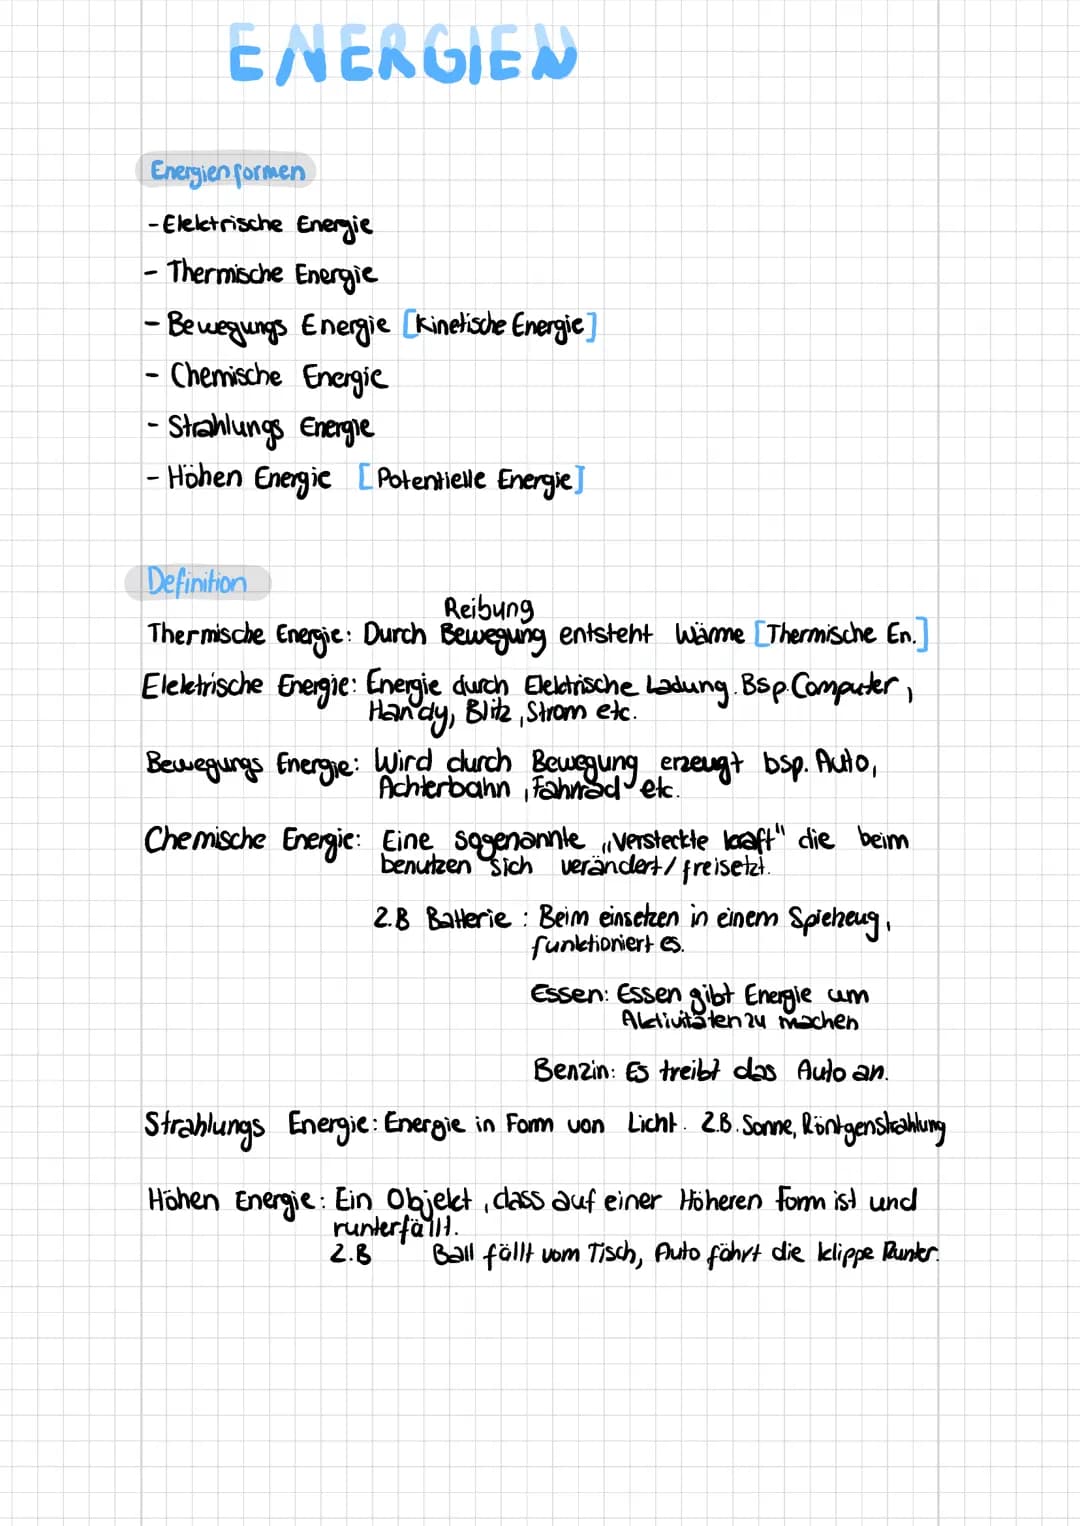 ENERGIEN
Energienformen
- Elektrische Energie
- Thermische Energie
- Bewegungs Energie [Kinetische Energie]
- Chemische Energie
- Strahlungs Energie
- Höhen Energie [Potentielle Energie]
Definition
Reibung
Thermische Energie: Durch Bewegung entsteht Wärme [Thermische En.]
Elektrische Energie: Energie durch Elektrische Ladung. Bsp. Computer,
Handy, Blitz, Strom etc.
Bewegungs Energie: Wird durch Bewegung erzeugt bsp. Auto,
Achterbahn, Fahrrad etc.
Chemische Energie: Eine sogenannte „versteckte kraft" die beim
benutzen sich verändert/freisetzt.
Z.B Batterie: Beim einsetzen in einem Spielzeug,
funktioniert es.
Essen: Essen gibt Energie um
Aktivitäten zu machen
Benzin: Es treibt das Auto an.
Strahlungs Energie: Energie in Form von Licht. Z.B. Sonne, Röntgenstrahlung
Höhen Energie: Ein Objekt, dass auf einer Höheren Form ist und
runterfällt.
Z.B Ball fällt vom Tisch, Auto fährt die klippe Runter.